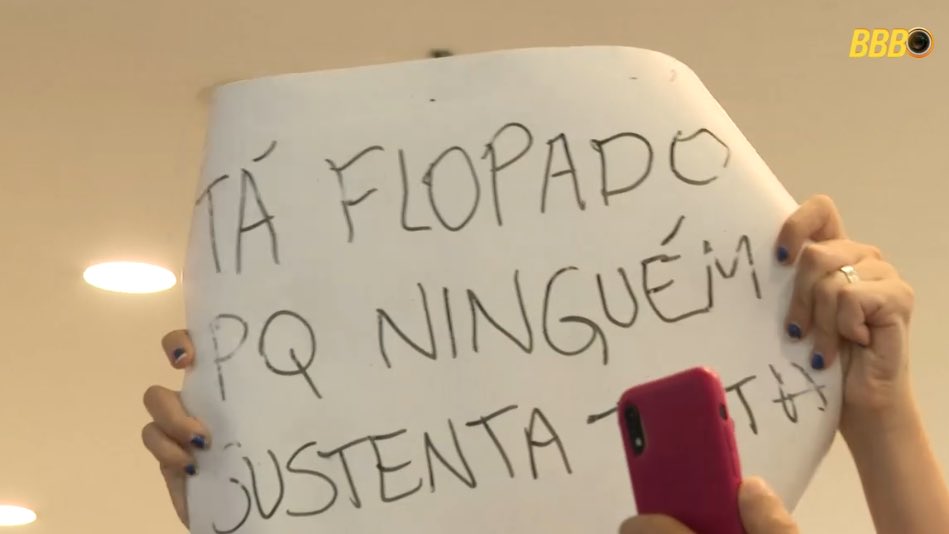 BBB
TÁ FLOPADO
PQ NINGUÉM
SUSTENTA